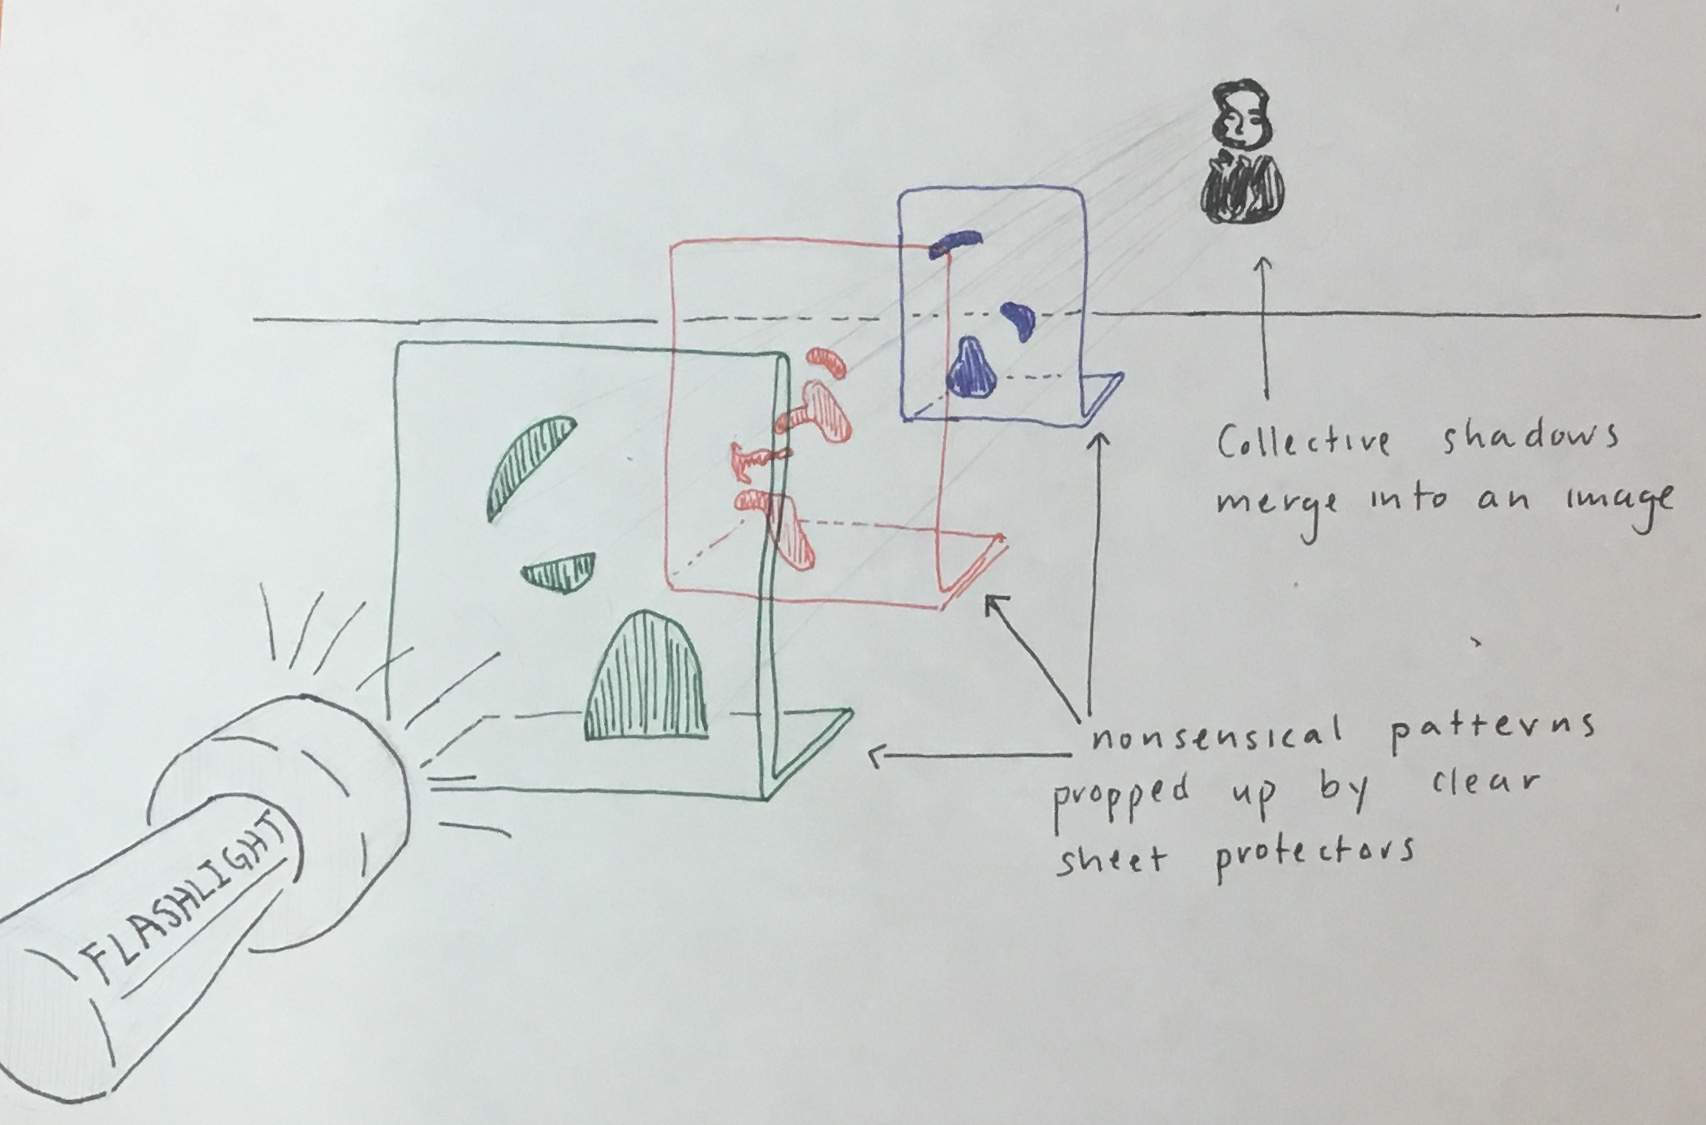 Collective shadows
merge into an image
nonsensical patterns
propped up by clear
sheet protectors
FLASHLIGHT